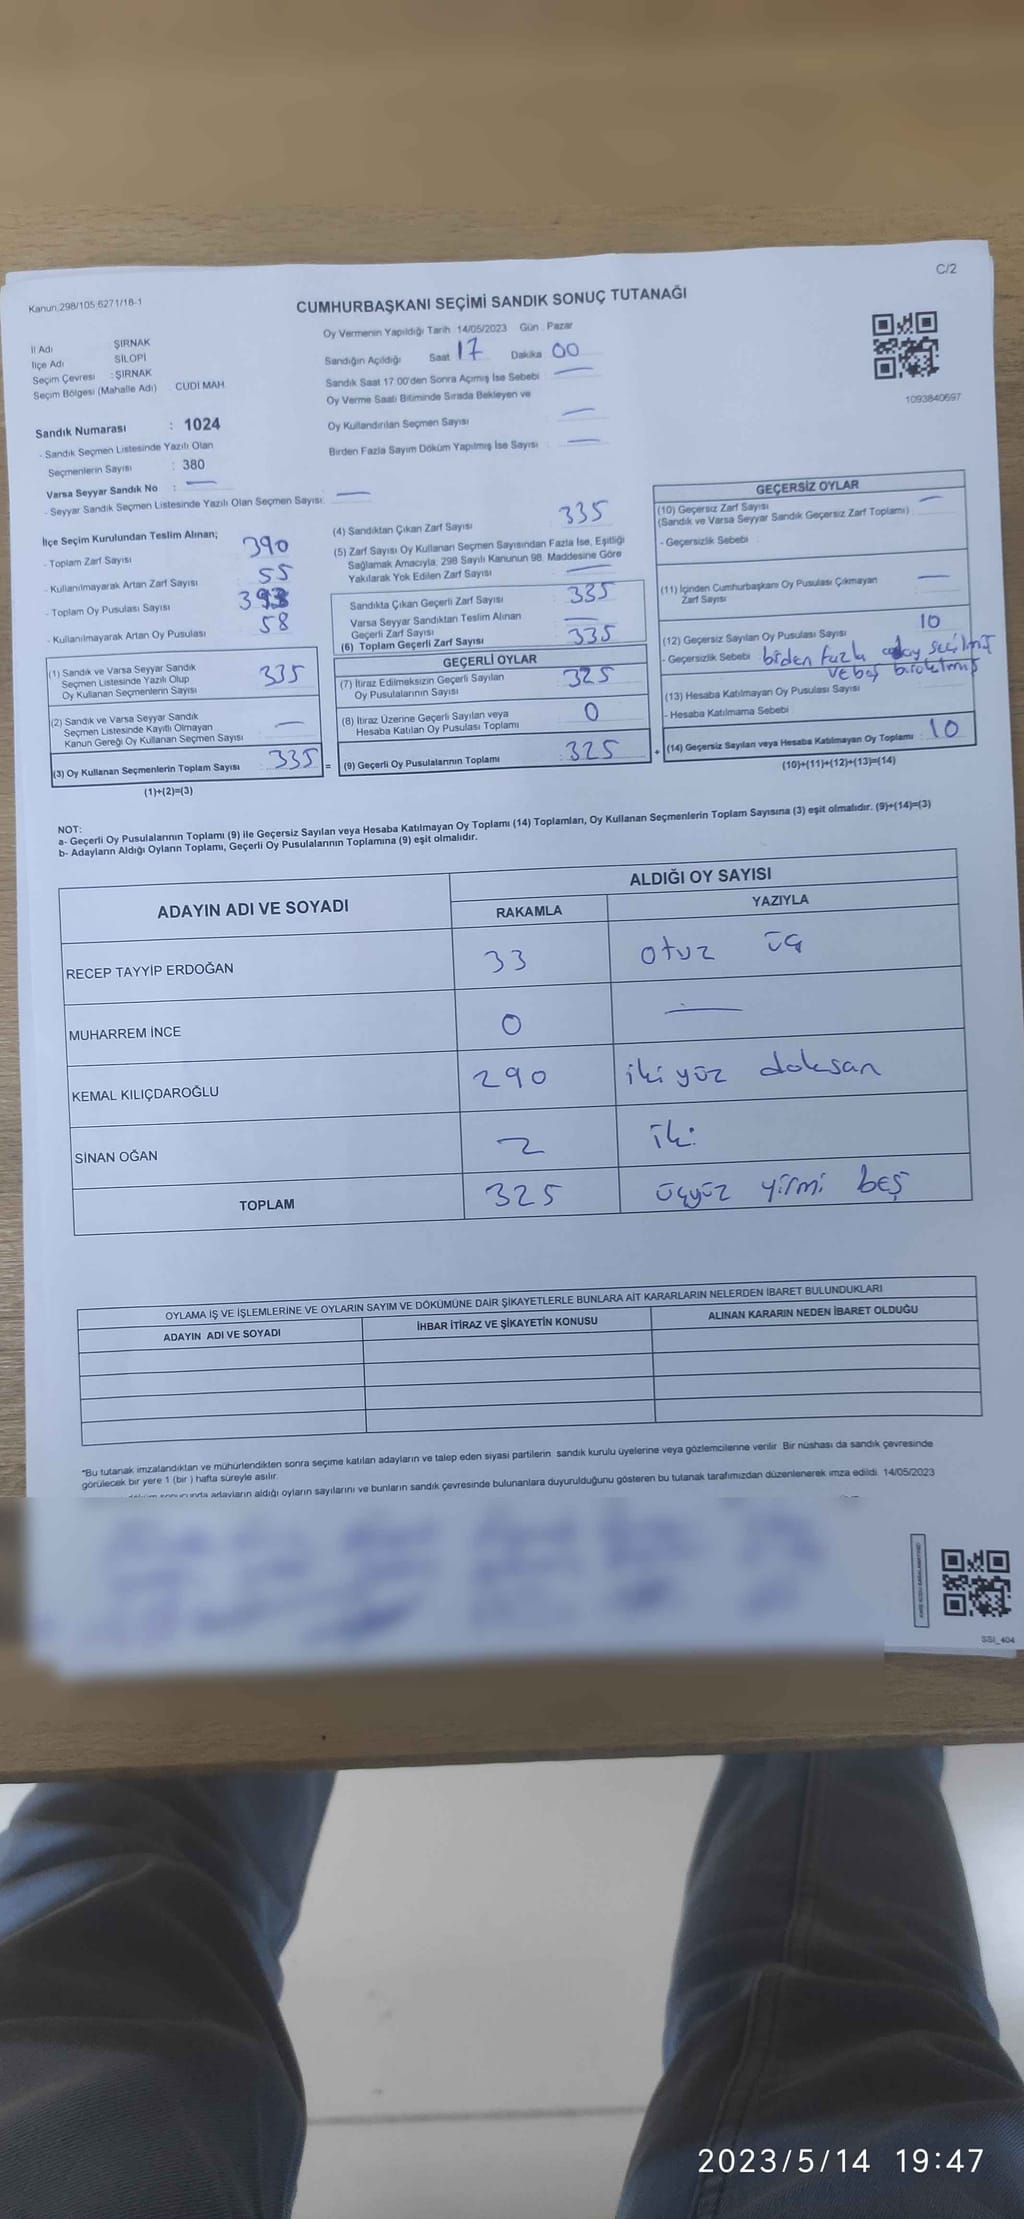 C/2
Kanun:298/105;6271/18-1
CUMHURBAŞKANI SEÇİMİ SANDIK SONUÇ TUTANAĞI
İl Adı ŞIRNAK
İlçe Adı SİLOPİ
Seçim Çevresi : ŞIRNAK
Seçim Bölgesi (Mahalle Adı) CUDİ MAH
Oy Vermenin Yapıldığı Tarih :14/05/2023 Gün : Pazar
Sandığın Açıldığı Saat 17 Dakika 00
Sandık Saat 17:00'den Sonra Açımış İse Sebebi
Oy Verme Saati Bitiminde Sırada Bekleyen ve
Oy Kullandırılan Seçmen Sayısı
Birden Fazla Sayım Döküm Yapılmış İse Sayısı
1093840697
Sandık Numarası : 1024
- Sandık Seçmen Listesinde Yazılı Olan
Seçmenlerin Sayısı : 380
Varsa Seyyar Sandık No :
- Seyyar Sandık Seçmen Listesinde Yazılı Olan Seçmen Sayısı:
İlçe Seçim Kurulundan Teslim Alınan;
- Toplam Zarf Sayısı 390
- Kullanılmayarak Artan Zarf Sayısı 55
- Toplam Oy Pusulası Sayısı 393
- Kullanılmayarak Artan Oy Pusulası 58
(1) Sandık ve Varsa Seyyar Sandık
Seçmen Listesinde Yazılı Olup
Oy Kullanan Seçmenlerin Sayısı 335
(2) Sandık ve Varsa Seyyar Sandık
Seçmen Listesinde Kayıtlı Olmayan
Kanun Gereği Oy Kullanan Seçmen Sayısı
(3) Oy Kullanan Seçmenlerin Toplam Sayısı : 335 =
(1)+(2)=(3)
(4) Sandıktan Çıkan Zarf Sayısı 335
(5) Zarf Sayısı Oy Kullanan Seçmen Sayısından Fazla İse, Eşitliği
Sağlamak Amacıyla, 298 Sayılı Kanunun 98. Maddesine Göre
Yakılarak Yok Edilen Zarf Sayısı
Sandıkta Çıkan Geçerli Zarf Sayısı 335
Varsa Seyyar Sandıktan Teslim Alınan
Geçerli Zarf Sayısı
(6) Toplam Geçerli Zarf Sayısı 335
GEÇERLİ OYLAR
(7) İtiraz Edilmeksizin Geçerli Sayılan
Oy Pusulalarının Sayısı 325
(8) İtiraz Üzerine Geçerli Sayılan veya
Hesaba Katılan Oy Pusulası Toplamı 0
(9) Geçerli Oy Pusulalarının Toplamı : 325 +
GEÇERSİZ OYLAR
(10) Geçersiz Zarf Sayısı
(Sandık ve Varsa Seyyar Sandık Geçersiz Zarf Toplamı) :
- Geçersizlik Sebebi :
(11) İçinden Cumhurbaşkanı Oy Pusulası Çıkmayan
Zarf Sayısı
(12) Geçersiz Sayılan Oy Pusulası Sayısı 10
- Geçersizlik Sebebi : biden fazla aday seçilmiş
ve boş bırakılmış
(13) Hesaba Katılmayan Oy Pusulası Sayısı
- Hesaba Katılmama Sebebi :
(14) Geçersiz Sayılan veya Hesaba Katılmayan Oy Toplamı : 10
(10)+(11)+(12)+(13)=(14)
NOT:
a- Geçerli Oy Pusulalarının Toplamı (9) ile Geçersiz Sayılan veya Hesaba Katılmayan Oy Toplamı (14) Toplamları, Oy Kullanan Seçmenlerin Toplam Sayısına (3) eşit olmalıdır. (9)+(14)=(3)
b- Adayların Aldığı Oyların Toplamı, Geçerli Oy Pusulalarının Toplamına (9) eşit olmalıdır.
ADAYIN ADI VE SOYADI ALDIĞI OY SAYISI
RAKAMLA YAZIYLA
RECEP TAYYİP ERDOĞAN 33 otuz üç
MUHARREM İNCE 0
KEMAL KILIÇDAROĞLU 290 iki yüz doksan
SİNAN OĞAN 2 iki
TOPLAM 325 üçyüz yirmi beş
OYLAMA İŞ VE İŞLEMLERİNE VE OYLARIN SAYIM VE DÖKÜMÜNE DAİR ŞİKAYETLERLE BUNLARA AİT KARARLARIN NELERDEN İBARET BULUNDUKLARI
ADAYIN ADI VE SOYADI İHBAR İTİRAZ VE ŞİKAYETİN KONUSU ALINAN KARARIN NEDEN İBARET OLDUĞU
*Bu tutanak imzalandıktan ve mühürlendikten sonra seçime katılan adayların ve talep eden siyasi partilerin sandık kurulu üyelerine veya gözlemcilerine verilir. Bir nüshası da sandık çevresinde
görülecek bir yere 1 (bir ) hafta süreyle asılır.
sonucunda adayların aldığı oyların sayılarını ve bunların sandık çevresinde bulunanlara duyurulduğunu gösteren bu tutanak tarafımızdan düzenlenerek imza edildi. 14/05/2023
SSI_404
2023/5/14 19:47